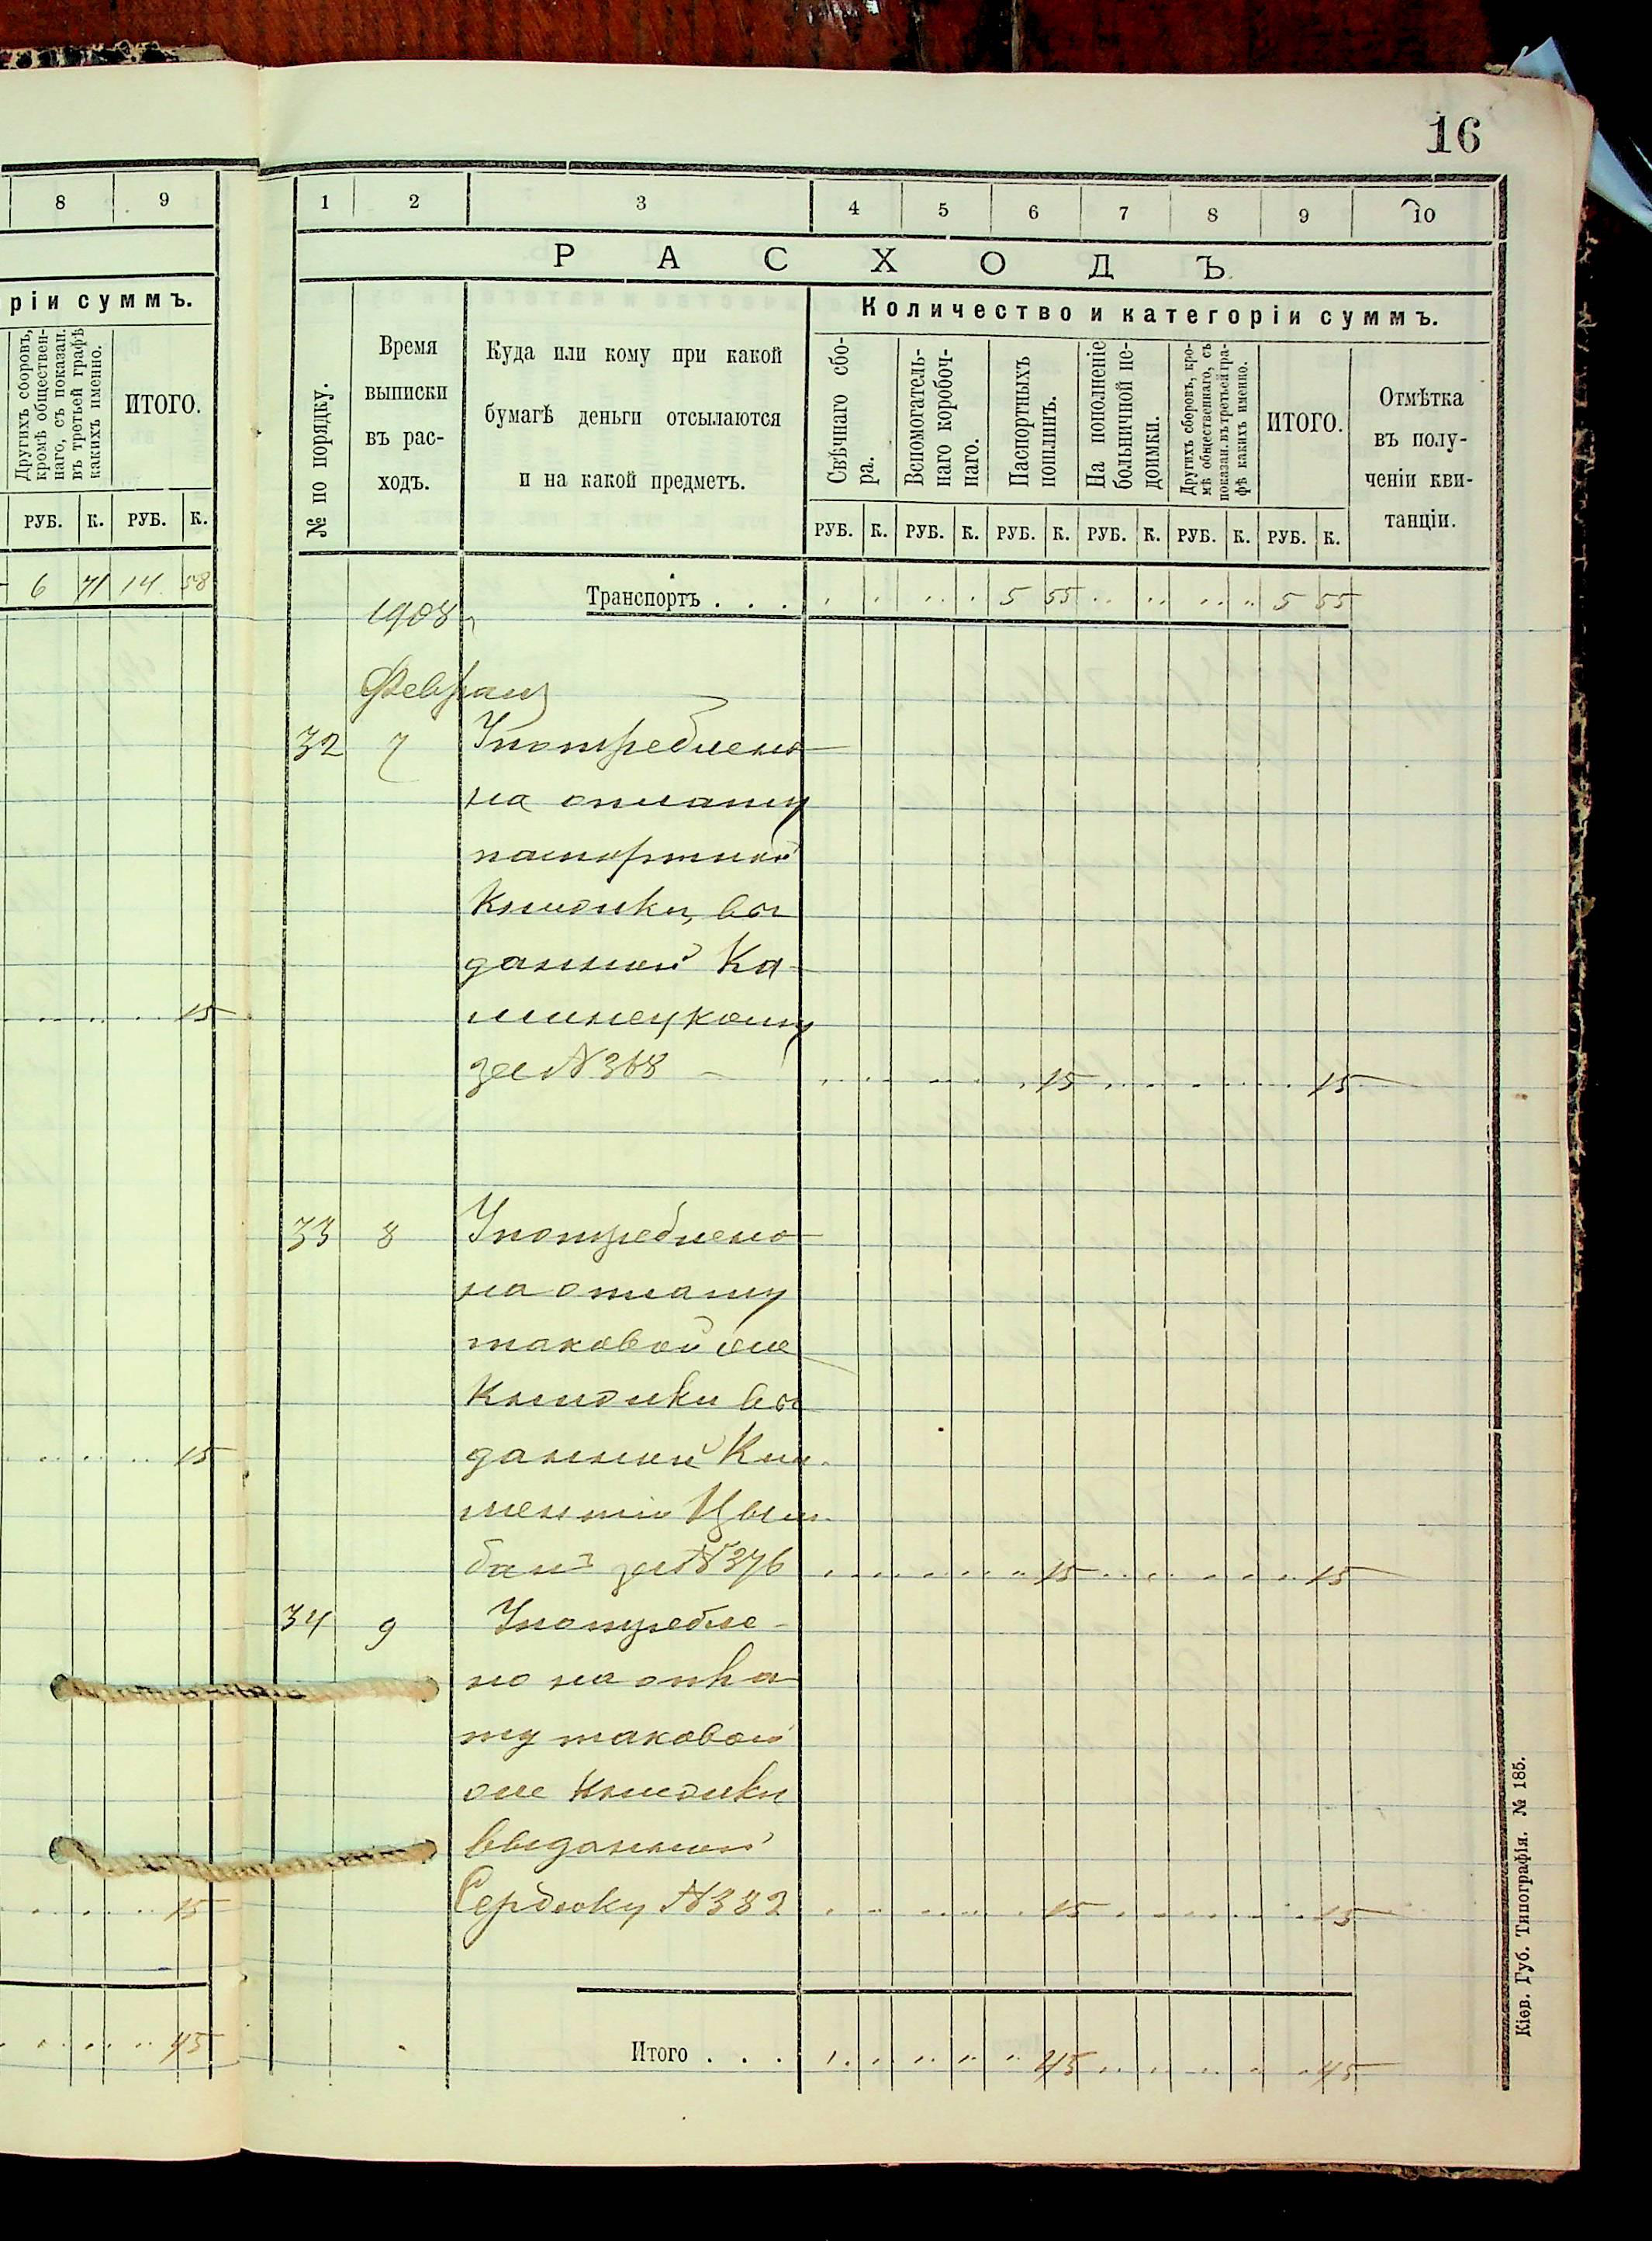 16
8 9
ріи суммъ.
Другихъ сборовъ,
кромѣ обществен-
наго, съ показан.
въ третьей графѣ
какихъ именно.
ИТОГО.
РУБ. К. РУБ. К.
6 71 14 58
15
15
15
45
1 2 3 4 5 6 7 8 9 10
РАСХОДЪ
Количество и категоріи суммъ.
№ по порядку.
Время
выписки
въ рас-
ходъ.
Куда или кому при какой
бумагѣ деньги отсылаются
и на какой предметъ.
Свѣчнаго сбо-
ра.
Вспомогатель-
наго коробоч-
наго.
Паспортныхъ
пошлинъ.
На пополненіе
больничной не-
доимки.
Другихъ сборовъ, кро-
мѣ общественнаго, съ
показан. въ третьей гра-
фѣ какихъ именно.
ИТОГО.
Отмѣтка
въ полу-
ченіи кви-
танціи.
РУБ. К. РУБ. К. РУБ. К. РУБ. К. РУБ. К. РУБ. К.
Транспортъ . . . 5 55 5 55
1908
Февраль
32 7 Употреблено
на оплату
паспортной
книжки, вы
данной Ка-
минецкому
за № 368 15 15
33 8 Употреблено
на оплату
таковой же
книжки вы
данной Кли-
ментію Цым-
балъ за № 376 15 15
34 9 Употребле-
но на опла
ту таковой
же книжки
выданной
Сердюку № 382 15 15
Итого . . . 45 45
Кіев. Губ. Типографія. № 185.